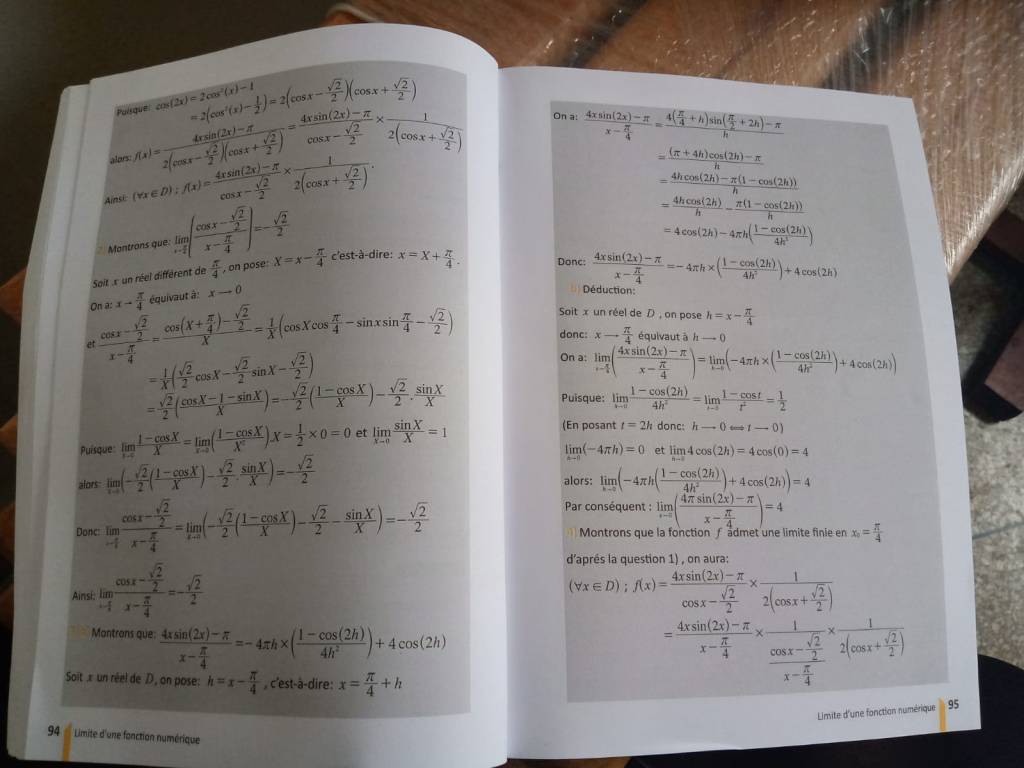 Puisque: cos(2x) = 2cos²(x) − 1
= 2(cos²(x) − 1/2) = 2(cosx − √2/2)(cosx + √2/2)
alors: f(x) = (4xsin(2x) − π) / (2(cosx − √2/2)(cosx + √2/2)) = (4xsin(2x) − π) / (cosx − √2/2) × 1 / (2(cosx + √2/2))
Ainsi: (∀x ∈ D) ; f(x) = (4xsin(2x) − π) / (cosx − √2/2) × 1 / (2(cosx + √2/2)).
2) Montrons que: lim x→π/4 ((cosx − √2/2) / (x − π/4)) = −√2/2
Soit x un réel différent de π/4, on pose: X = x − π/4 c'est-à-dire: x = X + π/4.
On a: x → π/4 équivaut à: x → 0
et (cosx − √2/2) / (x − π/4) = (cos(X + π/4) − √2/2) / X = 1/X (cosXcos π/4 − sinxsin π/4 − √2/2)
= 1/X (√2/2 cosX − √2/2 sinX − √2/2)
= √2/2 ((cosX − 1 − sinX) / X) = −√2/2 ((1 − cosX) / X) − √2/2 . sinX/X
Puisque: lim X→0 (1 − cosX)/X = lim X→0 ((1 − cosX)/X²).X = 1/2 × 0 = 0 et lim X→0 sinX/X = 1
alors: lim X→0 (−√2/2 ((1 − cosX)/X) − √2/2 . sinX/X) = −√2/2
Donc: lim x→π/4 (cosx − √2/2) / (x − π/4) = lim X→0 (−√2/2 ((1 − cosX)/X) − √2/2 − sinX/X) = −√2/2
Ainsi: lim x→π/4 (cosx − √2/2) / (x − π/4) = −√2/2
Montrons que: (4xsin(2x) − π) / (x − π/4) = −4πh × ((1 − cos(2h)) / 4h²) + 4cos(2h)
Soit x un réel de D, on pose: h = x − π/4, c'est-à-dire: x = π/4 + h
94 Limite d'une fonction numérique
On a: (4xsin(2x) − π) / (x − π/4) = (4(π/4 + h)sin(π/2 + 2h) − π) / h
= ((π + 4h)cos(2h) − π) / h
= (4hcos(2h) − π(1 − cos(2h))) / h
= 4hcos(2h)/h − π(1 − cos(2h))/h
= 4cos(2h) − 4πh((1 − cos(2h)) / 4h²)
Donc: (4xsin(2x) − π) / (x − π/4) = −4πh × ((1 − cos(2h)) / 4h²) + 4cos(2h)
b) Déduction:
Soit x un réel de D, on pose h = x − π/4
donc: x → π/4 équivaut à h → 0
On a: lim x→π/4 ((4xsin(2x) − π) / (x − π/4)) = lim h→0 (−4πh × ((1 − cos(2h)) / 4h²) + 4cos(2h))
Puisque: lim h→0 (1 − cos(2h)) / 4h² = lim t→0 (1 − cost) / t² = 1/2
(En posant t = 2h donc: h → 0 ⟺ t → 0)
lim h→0 (−4πh) = 0 et lim h→0 4cos(2h) = 4cos(0) = 4
alors: lim h→0 (−4πh((1 − cos(2h)) / 4h²) + 4cos(2h)) = 4
Par conséquent : lim x→π/4 ((4πsin(2x) − π) / (x − π/4)) = 4
4) Montrons que la fonction f admet une limite finie en x₀ = π/4
d'aprés la question 1) , on aura:
(∀x ∈ D) ; f(x) = (4xsin(2x) − π) / (cosx − √2/2) × 1 / (2(cosx + √2/2))
= (4xsin(2x) − π) / (x − π/4) × 1 / ((cosx − √2/2) / (x − π/4)) × 1 / (2(cosx + √2/2))
Limite d'une fonction numérique 95